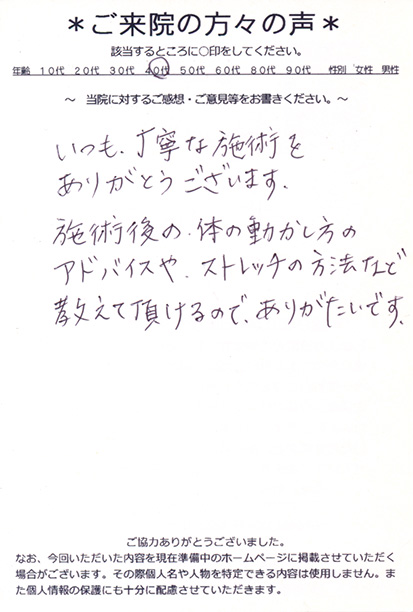 ＊ご来院の方々の声＊
該当するところに〇印をしてください。
年齢 １０代 ２０代 ３０代 ４０代 ５０代 ６０代 ８０代 ９０代 性別 女性 男性
～ 当院に対するご感想・ご意見等をお書きください。～
いつも、丁寧な施術を
ありがとうございます。
施術後の、体の動かし方の
アドバイスや、ストレッチの方法など
教えて頂けるので、ありがたいです。
ご協力ありがとうございました。
なお、今回いただいた内容を現在準中のホームページに掲載させていただく
場合がございます。その際個人名や人物を特定できる内容は使用しません。ま
た個人情報の保護にも十分に配慮させていただきます。